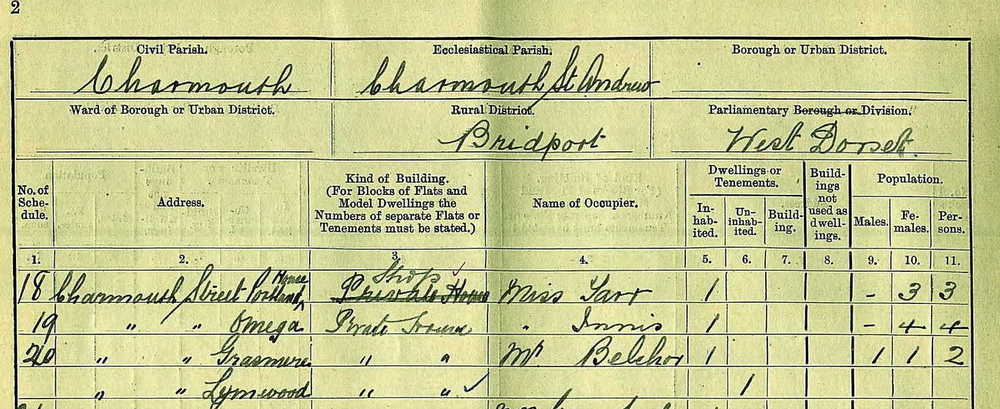 2
Civil Parish. Ecclesiastical Parish. Borough or Urban District.
Charmouth Charmouth St Andrew
Ward of Borough or Urban District. Rural District. Parliamentary Borough or Division.
Bridport West Dorset.
No. of Schedule. Address. Kind of Building. (For Blocks of Flats and Model Dwellings the Numbers of separate Flats or Tenements must be stated.) Name of Occupier. Dwellings or Tenements. Inhabited. Uninhabited. Building. Buildings not used as dwellings. Population. Males. Females. Persons.
1. 2. 3. 4. 5. 6. 7. 8. 9. 10. 11.
18 Charmouth Street Portland House Shop Private House Miss Tarr 1 - 3 3
19 " " Omega Private House " Innis 1 - 4 4
20 " " Grasmere " " Mr Belcher 1 1 1 2
" " Lymwood " " 1